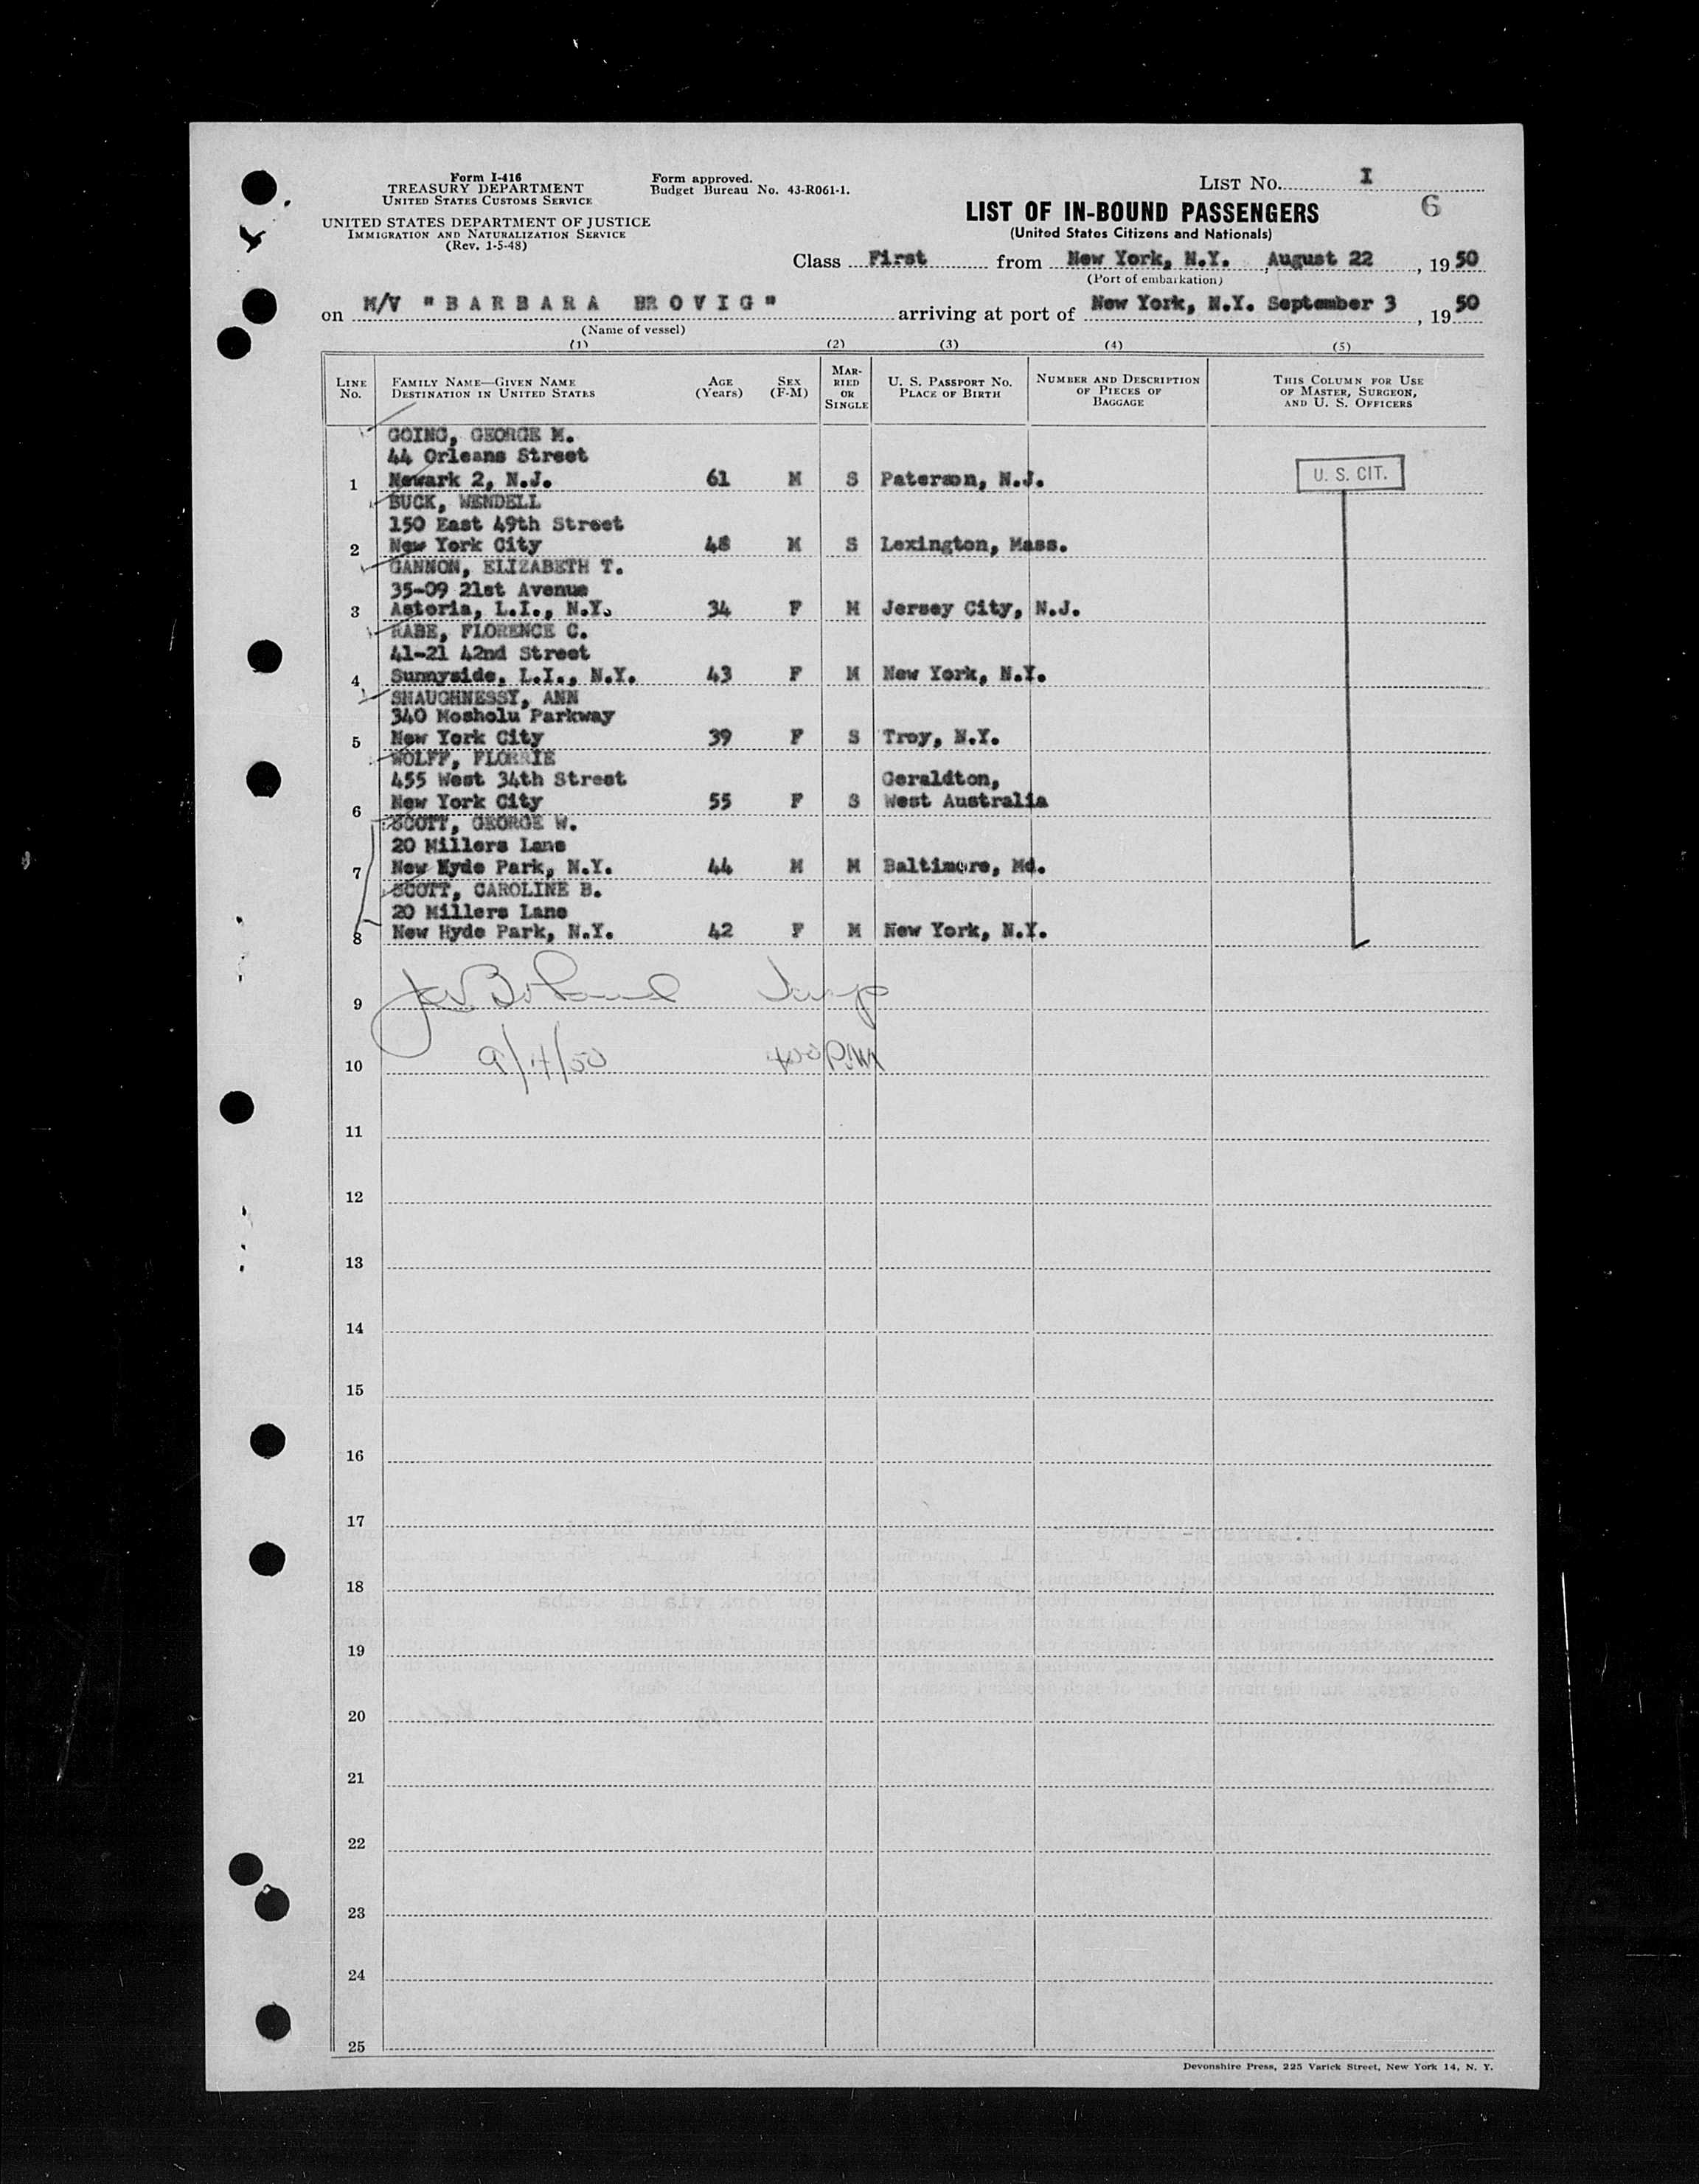 Form I-416
TREASURY DEPARTMENT
UNITED STATES CUSTOMS SERVICE
UNITED STATES DEPARTMENT OF JUSTICE
IMMIGRATION AND NATURALIZATION SERVICE
(Rev. 1-5-48)
Form approved.
Budget Bureau No. 43-R061-1.
LIST NO. I
6
LIST OF IN-BOUND PASSENGERS
(United States Citizens and Nationals)
Class First from New York, N.Y. August 22, 1950
(Port of embarkation)
on M/V "BARBARA BROVIG" arriving at port of New York, N.Y. September 3, 1950
(Name of vessel)
(1) (2) (3) (4) (5)
LINE NO. FAMILY NAME—GIVEN NAME DESTINATION IN UNITED STATES AGE (Years) SEX (F-M) MARRIED OR SINGLE U. S. PASSPORT NO. PLACE OF BIRTH NUMBER AND DESCRIPTION OF PIECES OF BAGGAGE THIS COLUMN FOR USE OF MASTER, SURGEON, AND U. S. OFFICERS
GOING, GEORGE M.
44 Orleans Street
1 Newark 2, N.J. 61 M S Paterson, N.J. U. S. CIT.
BUCK, WENDELL
150 East 49th Street
2 New York City 48 M S Lexington, Mass.
GANNON, ELIZABETH T.
35-09 21st Avenue
3 Astoria, L.I., N.Y. 34 F M Jersey City, N.J.
RABE, FLORENCE C.
41-21 42nd Street
4 Sunnyside, L.I., N.Y. 43 F M New York, N.Y.
SHAUGHNESSY, ANN
340 Mosholu Parkway
5 New York City 39 F S Troy, N.Y.
WOLFF, FLORRIE
455 West 34th Street Geraldton,
6 New York City 55 F S West Australia
SCOTT, GEORGE W.
20 Millers Lane
7 New Hyde Park, N.Y. 44 M M Baltimore, Md.
SCOTT, CAROLINE B.
20 Millers Lane
8 New Hyde Park, N.Y. 42 F M New York, N.Y.
9
10 9/4/50
11
12
13
14
15
16
17
18
19
20
21
22
23
24
25
Devonshire Press, 225 Varick Street, New York 14, N. Y.